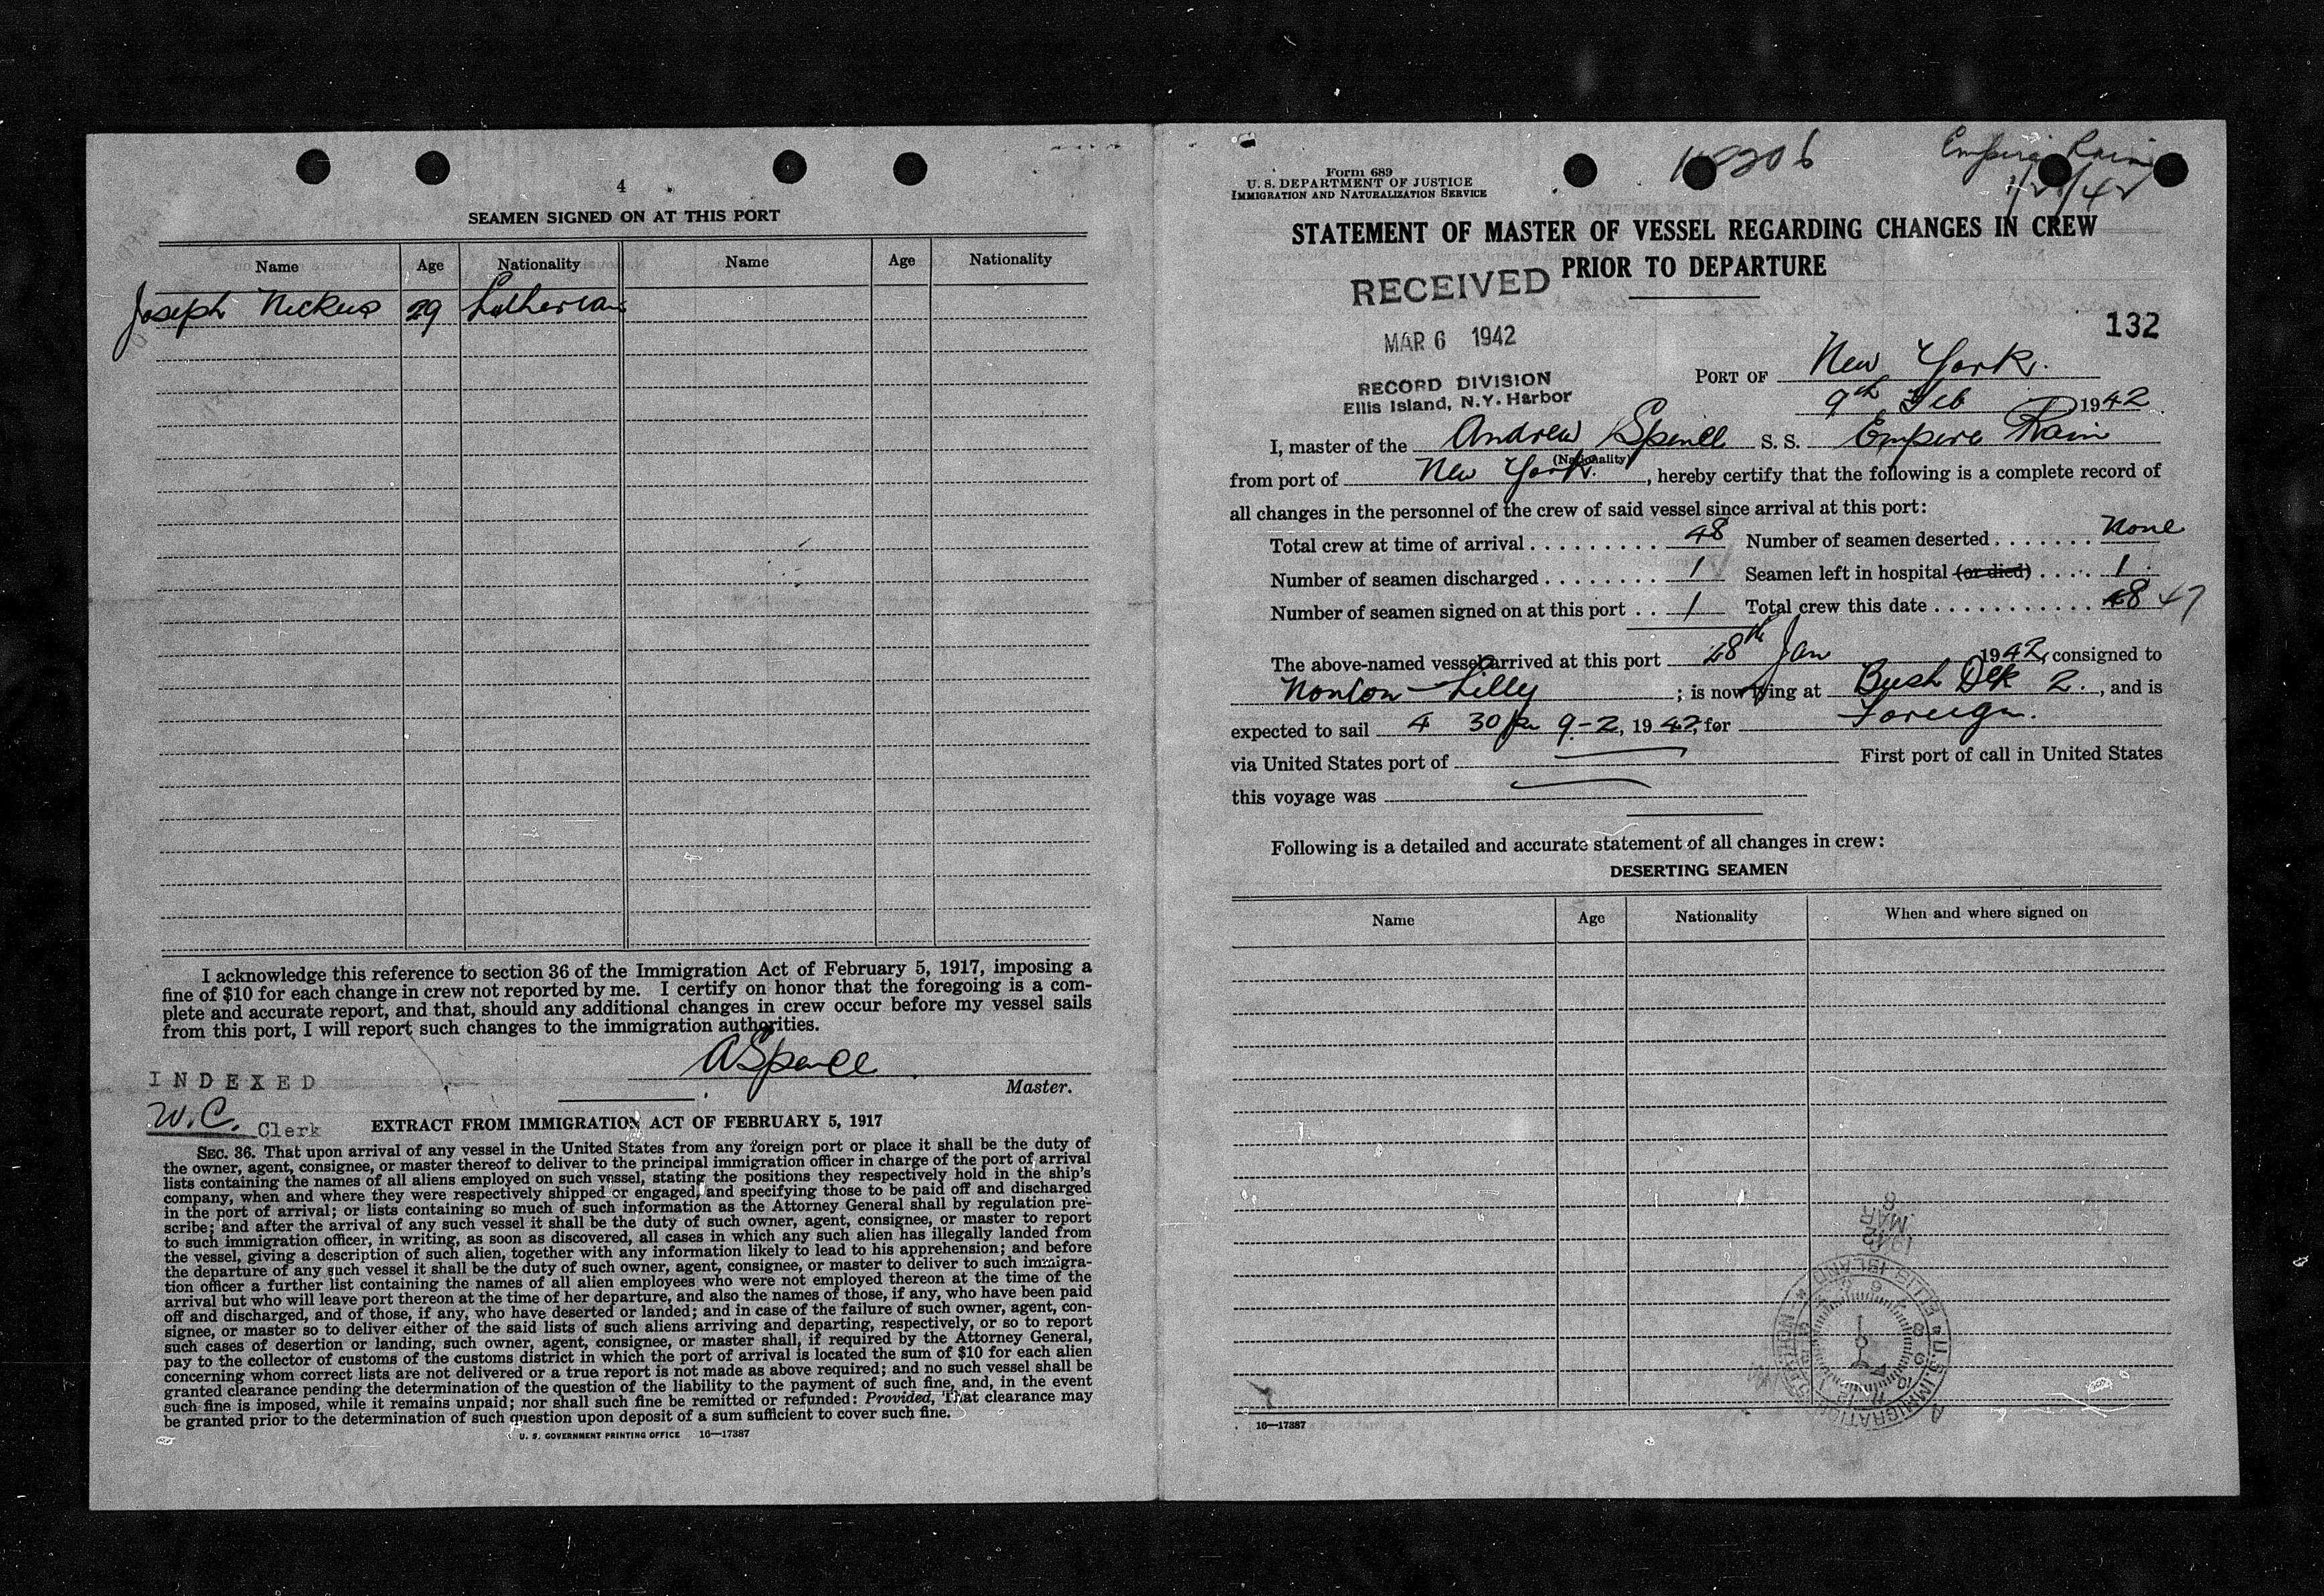 4
SEAMEN SIGNED ON AT THIS PORT
Name Age Nationality Name Age Nationality
Joseph 29
I acknowledge this reference to section 36 of the Immigration Act of February 5, 1917, imposing a
fine of $10 for each change in crew not reported by me. I certify on honor that the foregoing is a com-
plete and accurate report, and that, should any additional changes in crew occur before my vessel sails
from this port, I will report such changes to the immigration authorities.
A Spence
Master.
INDEXED
W.C. Clerk
EXTRACT FROM IMMIGRATION ACT OF FEBRUARY 5, 1917
SEC. 36. That upon arrival of any vessel in the United States from any foreign port or place it shall be the duty of
the owner, agent, consignee, or master thereof to deliver to the principal immigration officer in charge of the port of arrival
lists containing the names of all aliens employed on such vessel, stating the positions they respectively hold in the ship's
company, when and where they were respectively shipped or engaged, and specifying those to be paid off and discharged
in the port of arrival; or lists containing so much of such information as the Attorney General shall by regulation pre-
scribe; and after the arrival of any such vessel it shall be the duty of such owner, agent, consignee, or master to report
to such immigration officer, in writing, as soon as discovered, all cases in which any such alien has illegally landed from
the vessel, giving a description of such alien, together with any information likely to lead to his apprehension; and before
the departure of any such vessel it shall be the duty of such owner, agent, consignee, or master to deliver to such immigra-
tion officer a further list containing the names of all alien employees who were not employed thereon at the time of the
arrival but who will leave port thereon at the time of her departure, and also the names of those, if any, who have been paid
off and discharged, and of those, if any, who have deserted or landed; and in case of the failure of such owner, agent, con-
signee, or master so to deliver either of the said lists of such aliens arriving and departing, respectively, or so to report
such cases of desertion or landing, such owner, agent, consignee, or master shall, if required by the Attorney General,
pay to the collector of customs of the customs district in which the port of arrival is located the sum of $10 for each alien
concerning whom correct lists are not delivered or a true report is not made as above required; and no such vessel shall be
granted clearance pending the determination of the question of the liability to the payment of such fine, and, in the event
such fine is imposed, while it remains unpaid; nor shall such fine be remitted or refunded: Provided, That clearance may
be granted prior to the determination of such question upon deposit of a sum sufficient to cover such fine.
U. S. GOVERNMENT PRINTING OFFICE 16—17387
Empire Rain
Form 689
U. S. DEPARTMENT OF JUSTICE
IMMIGRATION AND NATURALIZATION SERVICE
STATEMENT OF MASTER OF VESSEL REGARDING CHANGES IN CREW
PRIOR TO DEPARTURE
RECEIVED
MAR 6 1942
RECORD DIVISION
Ellis Island, N.Y. Harbor
132
PORT OF New York.
9th Feb 1942
I, master of the Andrew Spence S. S. Empire Rain
(Nationality)
from port of New York., hereby certify that the following is a complete record of
all changes in the personnel of the crew of said vessel since arrival at this port:
Total crew at time of arrival 48 Number of seamen deserted None
Number of seamen discharged 1 Seamen left in hospital (or died) 1
Number of seamen signed on at this port 1 Total crew this date 48 47
The above-named vessel arrived at this port 28th Jan 1942, consigned to
Norton Lilly; is now lying at Bush Dck 2., and is
expected to sail 4 30 pm 9-2, 1942, for Foreign.
via United States port of First port of call in United States
this voyage was
Following is a detailed and accurate statement of all changes in crew:
DESERTING SEAMEN
Name Age Nationality When and where signed on
1942
MAR
8
U.S. IMMIGRATION
ELLIS ISLAND
16—17387